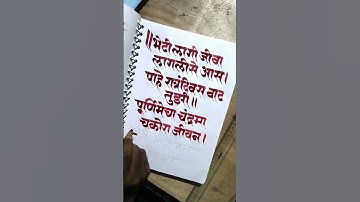 ॥भेटी लागी जीवा
लागलीसे आस।
पाहे रात्रंदिवस वाट
तुझी॥
पूर्णिमेचा चंद्रमा
चकोरा जीवन।